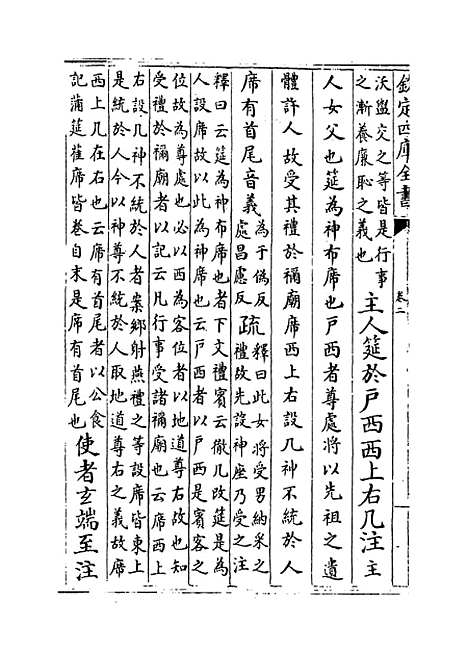 欽定四庫全書
卷二
沃盥交之等皆是行事
之漸養廉恥之義也
主人筵於戶西西上右几注主
人女父也筵為神布席也戶西者尊處將以先祖之遺
體許人故受其禮於禰廟席西上右設几神不統於人
席有首尾音義
為于偽反
處昌慮反
疏
釋曰此女將受男納采之
禮故先設神座乃受之注
釋曰云筵為神布席也者下文禮賓云徹几改筵是為
人設席故以此為神席也云戶西者以戶西是賓客之
位故為尊處也必以西為客位者以地道尊右故也知
受禮於禰廟者以記云凡行事受諸禰廟也云席西上
右設几神不統於人者案鄉射燕禮之等設席皆東上
是統於人今以神尊不統於人取地道尊右之義故席
西上几在右也云席有首尾者以公食
記蒲筵萑席皆卷自末是席有首尾也
使者玄端至注